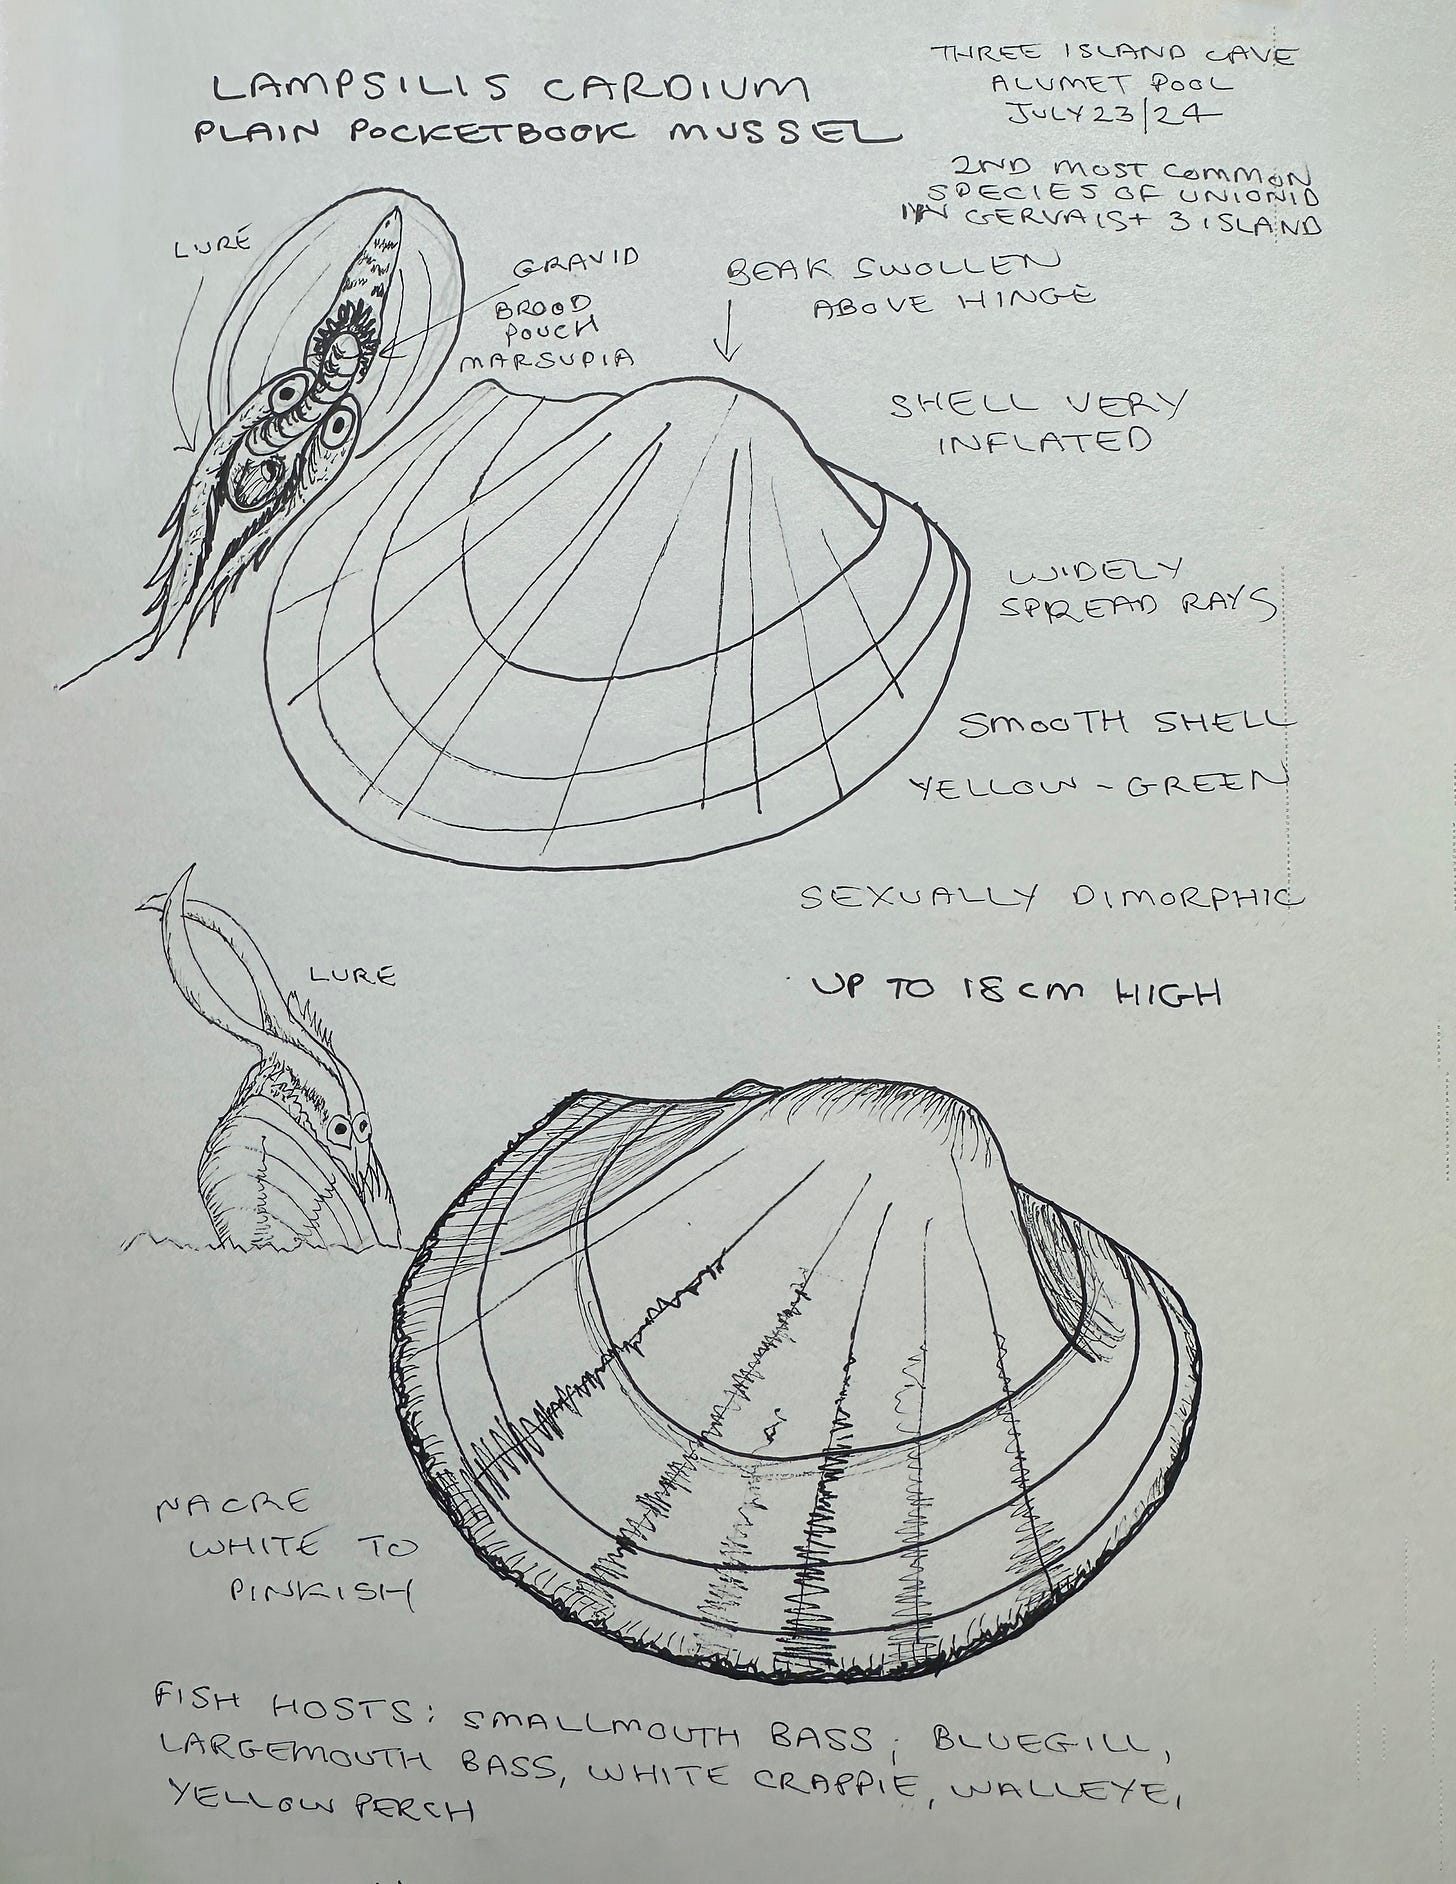 LAMPSILIS CARDIUM
PLAIN POCKETBOOK MUSSEL
THREE ISLAND CAVE
ALUMET POOL
JULY 23/24
2ND MOST COMMON
SPECIES OF UNIONID
IN GERVAIS + 3 ISLAND
LURE
GRAVID
BROOD
POUCH
MARSUPIA
BEAK SWOLLEN
ABOVE HINGE
SHELL VERY
INFLATED
WIDELY
SPREAD RAYS
SMOOTH SHELL
YELLOW - GREEN
SEXUALLY DIMORPHIC
LURE
UP TO 18 CM HIGH
NACRE
WHITE TO
PINKISH
FISH HOSTS: SMALLMOUTH BASS; BLUEGILL,
LARGEMOUTH BASS, WHITE CRAPPIE, WALLEYE,
YELLOW PERCH